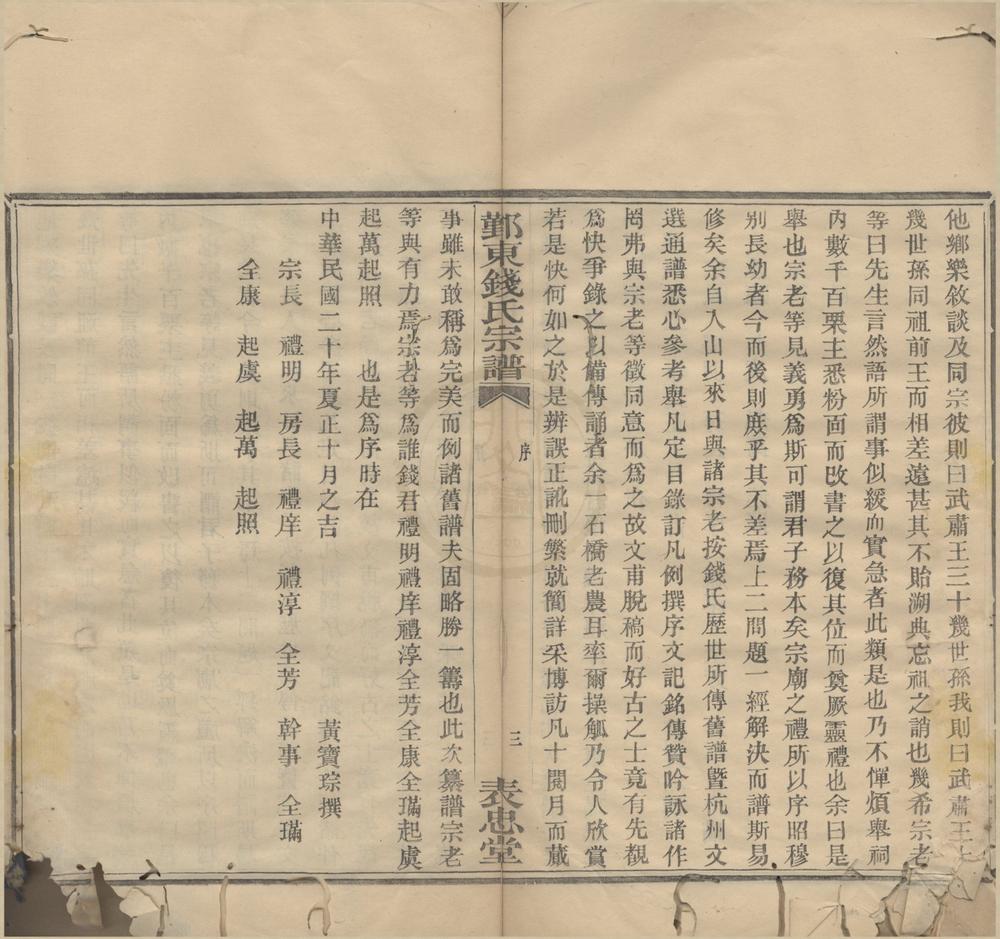 他鄉樂敘談及同宗彼則曰武肅王三十幾世孫我則曰武肅王
幾世孫同祖前王而相差遠甚其不貽溯典忘祖之誚也幾希宗老
等曰先生言然語所謂事似緩而實急者此類是也乃不憚煩舉祠
內數千百栗主悉粉面而改書之以復其位而奠厥靈禮也余曰是
舉也宗老等見義勇爲斯可謂君子務本矣宗廟之禮所以序昭穆
別長幼者今而後則庶乎其不差焉上二問題一經解決而譜斯易
修矣余自入山以來日與諸宗老按錢氏歷世所傳舊譜暨杭州文
選通譜悉心參考舉凡定目錄訂凡例撰序文記銘傳贊吟詠諸作
罔弗與宗老等徵同意而爲之故文甫脫稿而好古之士竟有先覩
爲快爭錄之以備傳誦者余一石橋老農耳率爾操觚乃令人欣賞
若是快何如之於是辨誤正訛刪繁就簡詳采博訪凡十閱月而蕆
鄞東錢氏宗譜 序 三 表忠堂
事雖未敢稱爲完美而例諸舊譜夫固略勝一籌也此次纂譜宗老
等與有力焉宗老等爲誰錢君禮明禮庠禮淳全芳全康全瑞起虞
起萬起照 也是爲序時在
中華民國二十年夏正十月之吉 黃寶琮撰
宗長 禮明 房長 禮庠 禮淳 全芳 幹事 全瑞
全康 起虞 起萬 起照